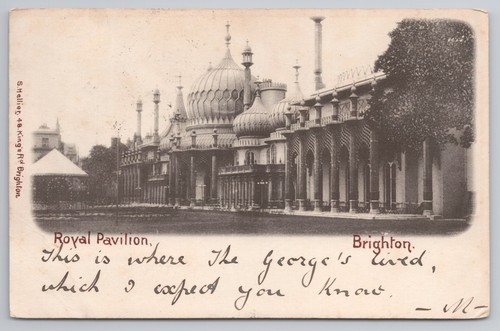 S. Hellier, 48, King's Rd Brighton.
Royal Pavilion, Brighton.
This is where The George's lived,
which I expect you Know.
- M -